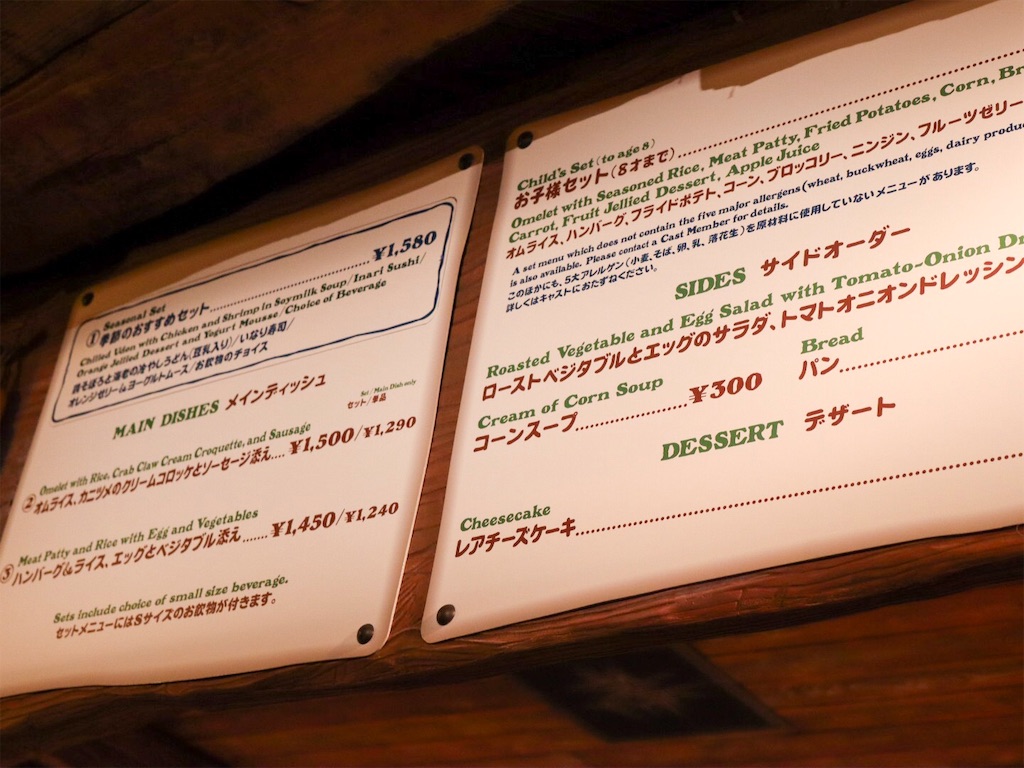 Seasonal Set
①季節のおすすめセット..............................¥1,580
Chilled Udon with Chicken and Shrimp in Soymilk Soup/Inari Sushi/
Orange Jellied Dessert and Yogurt Mousse/Choice of Beverage
鶏そぼろと海老の冷やしうどん(豆乳入り)/いなり寿司/
オレンジゼリー&ヨーグルトムース/お飲物のチョイス
MAIN DISHES メインディッシュ
Set / Main Dish only
セット/単品
Omelet with Rice, Crab Claw Cream Croquette, and Sausage
②オムライス、カニツメのクリームコロッケとソーセージ添え....¥1,500/¥1,290
Meat Patty and Rice with Egg and Vegetables
③ハンバーグ&ライス、エッグとベジタブル添え.......¥1,450/¥1,240
Sets include choice of small size beverage.
セットメニューにはSサイズのお飲物が付きます。
Child's Set (to age 8)
お子様セット(8才まで)........................................
Omelet with Seasoned Rice, Meat Patty, Fried Potatoes, Corn,
Carrot, Fruit Jellied Dessert, Apple Juice
オムライス、ハンバーグ、フライドポテト、コーン、ブロッコリー、ニンジン、フルーツゼリー
A set menu which does not contain the five major allergens (wheat, buckwheat, eggs, dairy
is also available. Please contact a Cast Member for details.
このほかにも、5大アレルゲン(小麦、そば、卵、乳、落花生)を原材料に使用していないメニューがあります。
詳しくはキャストにおたずねください。
SIDES サイドオーダー
Roasted Vegetable and Egg Salad with Tomato-Onion
ローストベジタブルとエッグのサラダ、トマトオニオンドレッシン
Cream of Corn Soup
コーンスープ....................¥300
Bread
パン....................
DESSERT デザート
Cheesecake
レアチーズケーキ............................................................